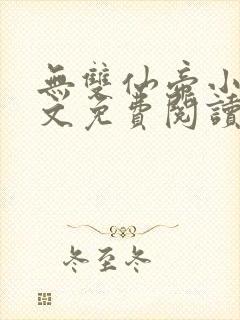 無雙仙帝小
文免費閱讀
冬至冬